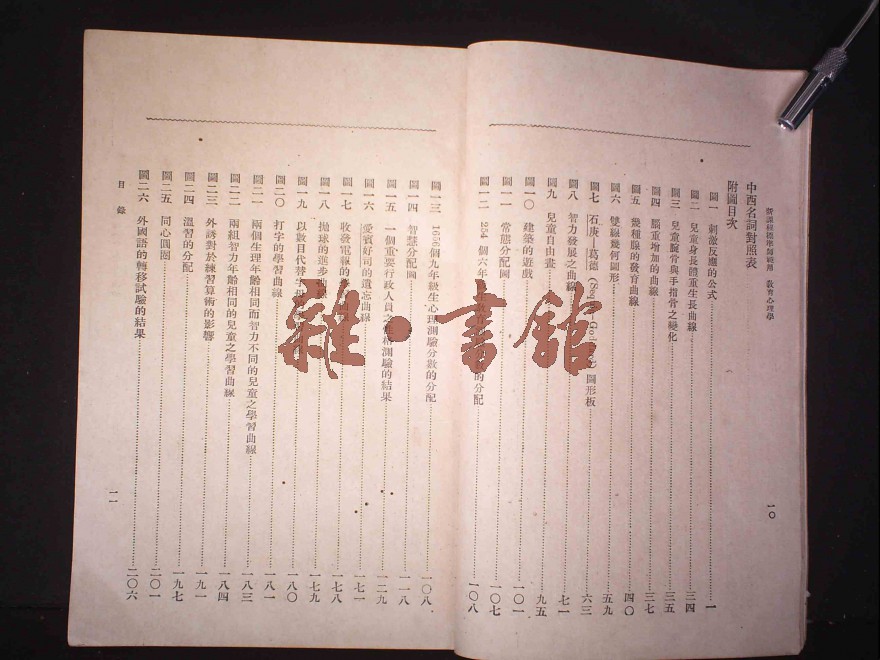 新課程標準師範適用 教育心理學
一〇
中西名詞對照表
附圖目次
圖一 刺激反應的公式 一
圖二 兒童身長體重生長曲線 三四
圖三 兒童腕骨與手指骨之變化 三五
圖四 腦重增加的曲線 三七
圖五 幾種腺的發育曲線 四〇
圖六 雙線幾何圖形 五九
圖七 石庚—葛德 圖形板 六三
圖八 智力發展之曲線 七一
圖九 兒童自由畫 九五
圖一〇 建築的遊戲 一〇一
圖一一 常態分配圖 一〇七
圖一二 254 個六年 的分配 一〇八
圖一三 1656個九年級生心理測驗分數的分配 一〇八
圖一四 智慧分配圖 一一八
圖一五 一個重要行政人員之 測驗的結果 一二九
圖一六 愛賓好司的遺忘曲線 一七一
圖一七 收發電報的 一七八
圖一八 拋球的進步曲線 一七九
圖一九 以數目代替字母 一八〇
圖二〇 打字的學習曲線 一八一
圖二一 兩個生理年齡相同而智力不同的兒童之學習曲線 一八三
圖二二 兩組智力年齡相同的兒童之學習曲線 一八四
圖二三 外誘對於練習算術的影響 一九一
圖二四 溫習的分配 一九七
圖二五 同心圓圈 二〇一
圖二六 外國語的轉移試驗的結果 二〇六
目錄
一一
雜·書館